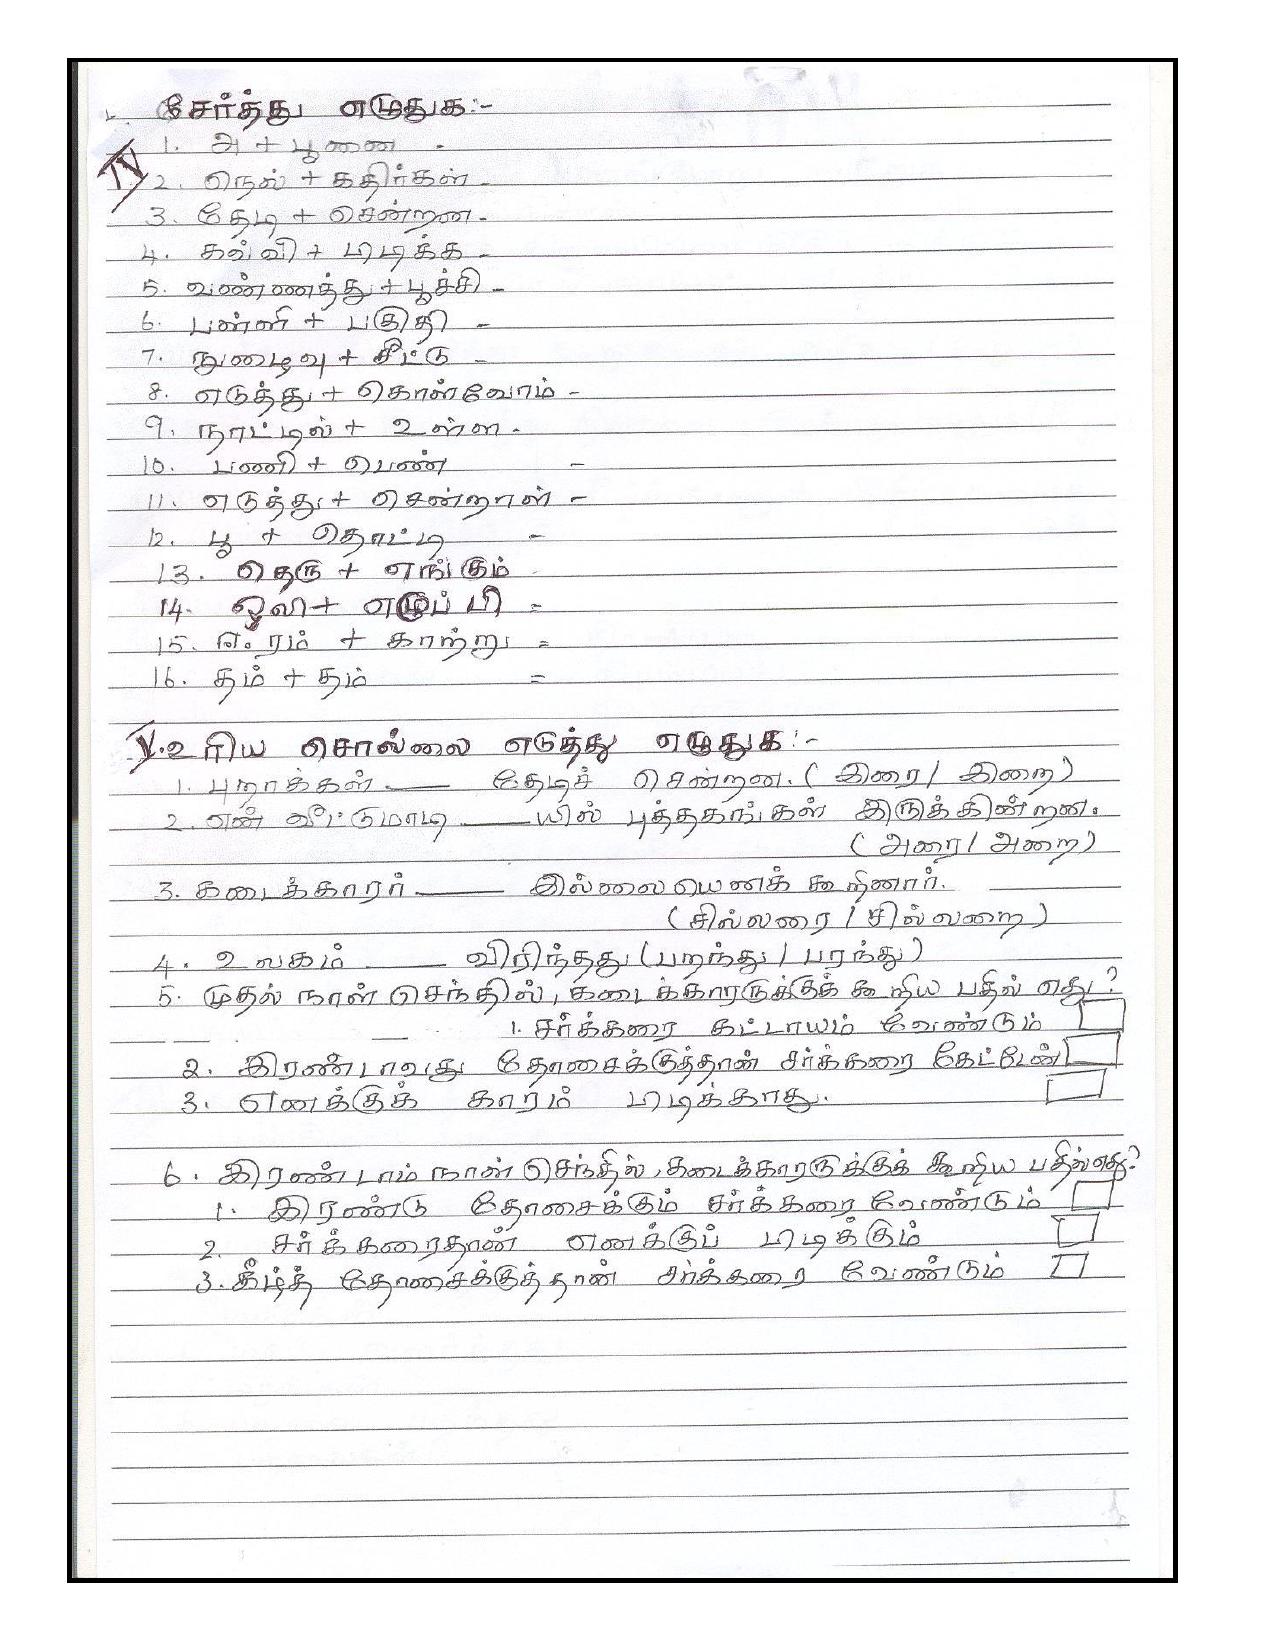 சேர்த்து எழுதுக:-
IV
1. அ + பூனை -
2. நெல் + கதிர்கள் -
3. தேடி + சென்றன -
4. கவ்வி + பிடிக்க -
5. வண்ணத்து + பூச்சி -
6. பன்னி + பகுதி -
7. நுழைவு + சீட்டு -
8. எடுத்து + கொள்வோம் -
9. நாட்டில் + உள்ள -
10. பணி + பெண் -
11. எடுத்து + சென்றாள் -
12. பூ + தொட்டி -
13. தெரு + எங்கும்
14. ஒலி + எழுப்பி =
15. ஈரம் + காற்று =
16. தம் + தம் =
V. உரிய சொல்லை எடுத்து எழுதுக:-
1. புறாக்கள் ____ தேடிச் சென்றன. (இரை / இறை)
2. என் வீட்டுமாடி ____யில் புத்தகங்கள் இருக்கின்றன.
(அரை / அறை)
3. கடைக்காரர் ____ இல்லையெனக் கூறினார்.
(சில்லரை / சில்லறை)
4. உலகம் ____ விரிந்தது (பறந்து / பரந்து)
5. முதல் நாள் செந்தில், கடைக்காரருக்குக் கூறிய பதில் எது?
1. சர்க்கரை கட்டாயம் வேண்டும்
2. இரண்டாவது தோசைக்குத்தான் சர்க்கரை கேட்டேன்
3. எனக்குக் காரம் பிடிக்காது.
6. இரண்டாம் நாள் செந்தில், கடைக்காரருக்குக் கூறிய பதில் எது?
1. இரண்டு தோசைக்கும் சர்க்கரை வேண்டும்
2. சர்க்கரைதான் எனக்குப் பிடிக்கும்
3. கீழ்த் தோசைக்குத்தான் சர்க்கரை வேண்டும்